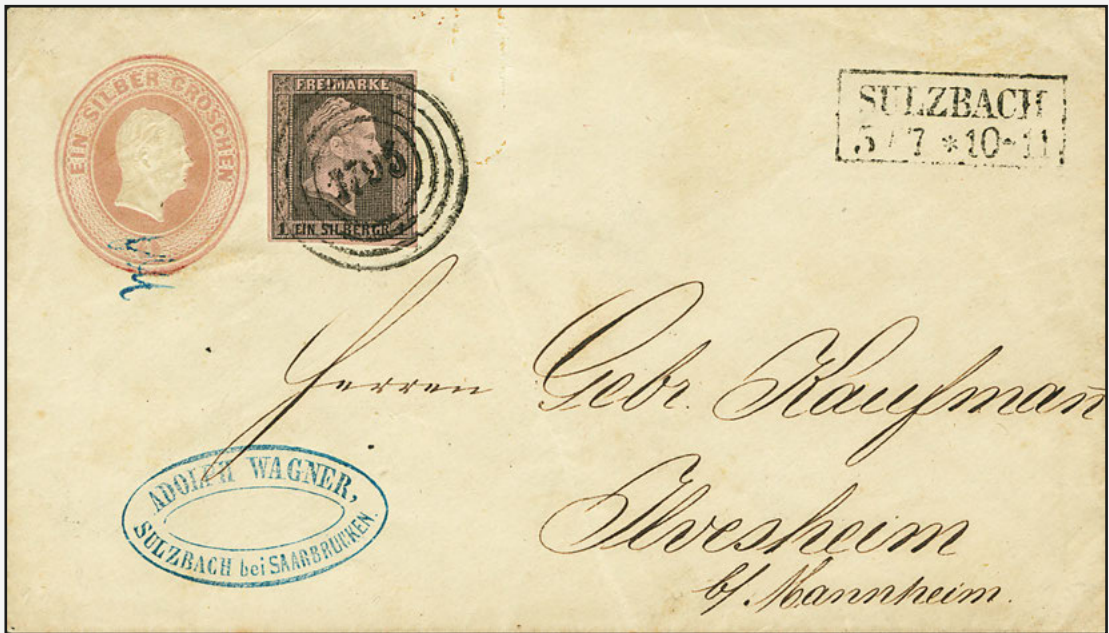 EIN SILBER GROSCHEN
FREIMARKE
1 EIN SILBERGR. 1
SULZBACH
5/7 * 10-11
Herren Gebr. Kaufmañ
Ilvesheim
b/ Mannheim.
ADOLPH WAGNER,
SULZBACH bei SAARBRÜCKEN.